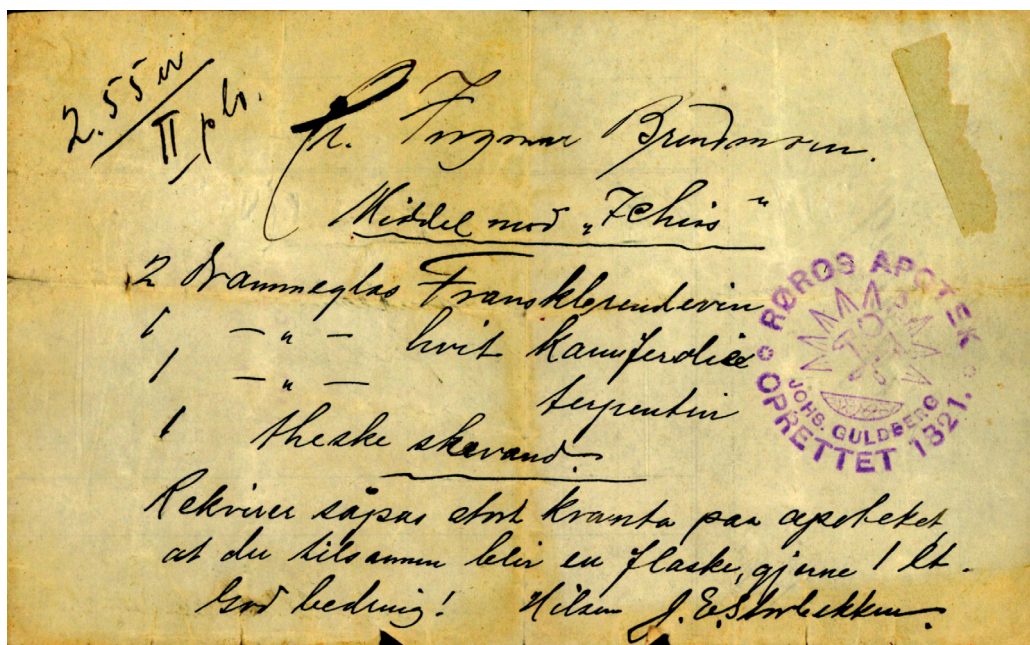 2.55 øre
II pls.
Hr. Ingmar Brendmoen.
Middel mod "Ichias"
2 Drammeglas Franskbrendevin
1 — " — hvit kamferolie
1 — " — terpentin
1 theske skævand.
Rekvirer såpas stort kvanta paa apoteket,
at du tilsammen blir en flaske, gjerne 1 lt.
God bedring! Hilsen J. E. Storbekken.
RØROS APOTEK
JOHS. GULDBERG
OPRETTET 1821.